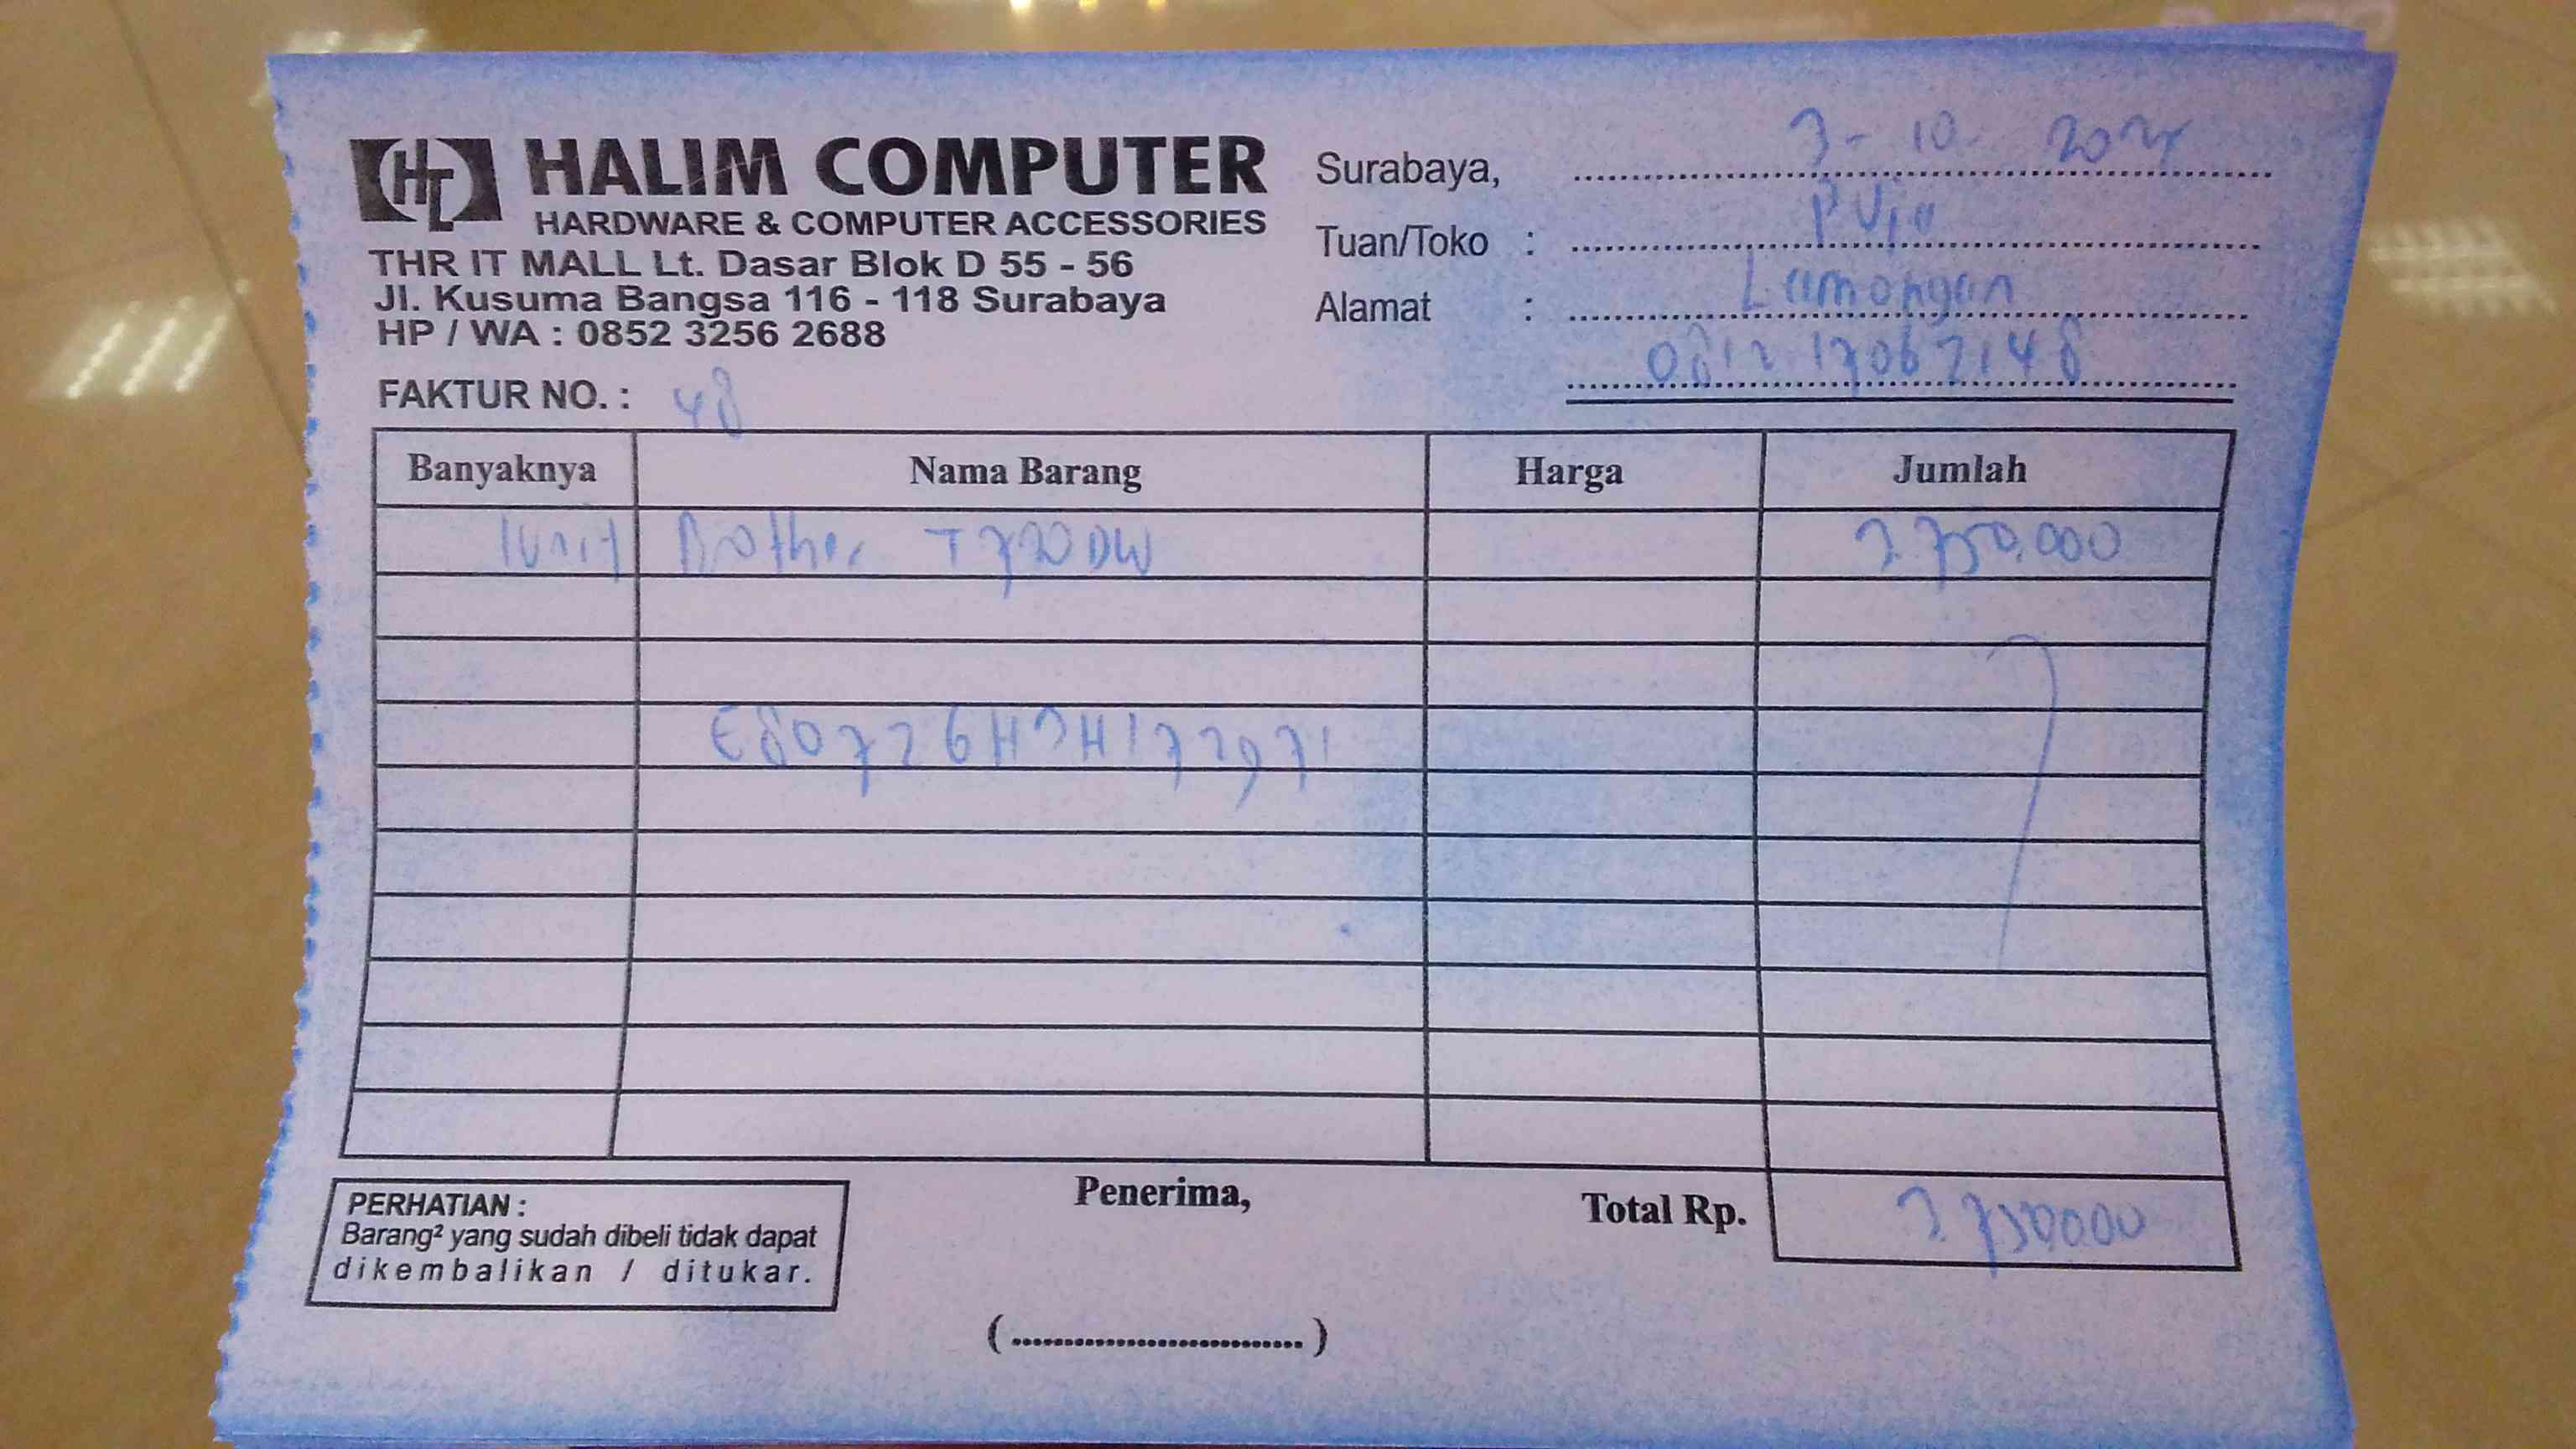 HALIM COMPUTER
HARDWARE & COMPUTER ACCESSORIES
THR IT MALL Lt. Dasar Blok D 55 - 56
Jl. Kusuma Bangsa 116 - 118 Surabaya
HP / WA : 0852 3256 2688
FAKTUR NO. : 48
Surabaya, 3 - 10 -
Tuan/Toko :
Alamat : Lamongan
Banyaknya Nama Barang Harga Jumlah
1 unit Brother T720DW 3.750.000
PERHATIAN :
Barang² yang sudah dibeli tidak dapat
dikembalikan / ditukar.
Penerima,
(..............................)
Total Rp. 3.750.000